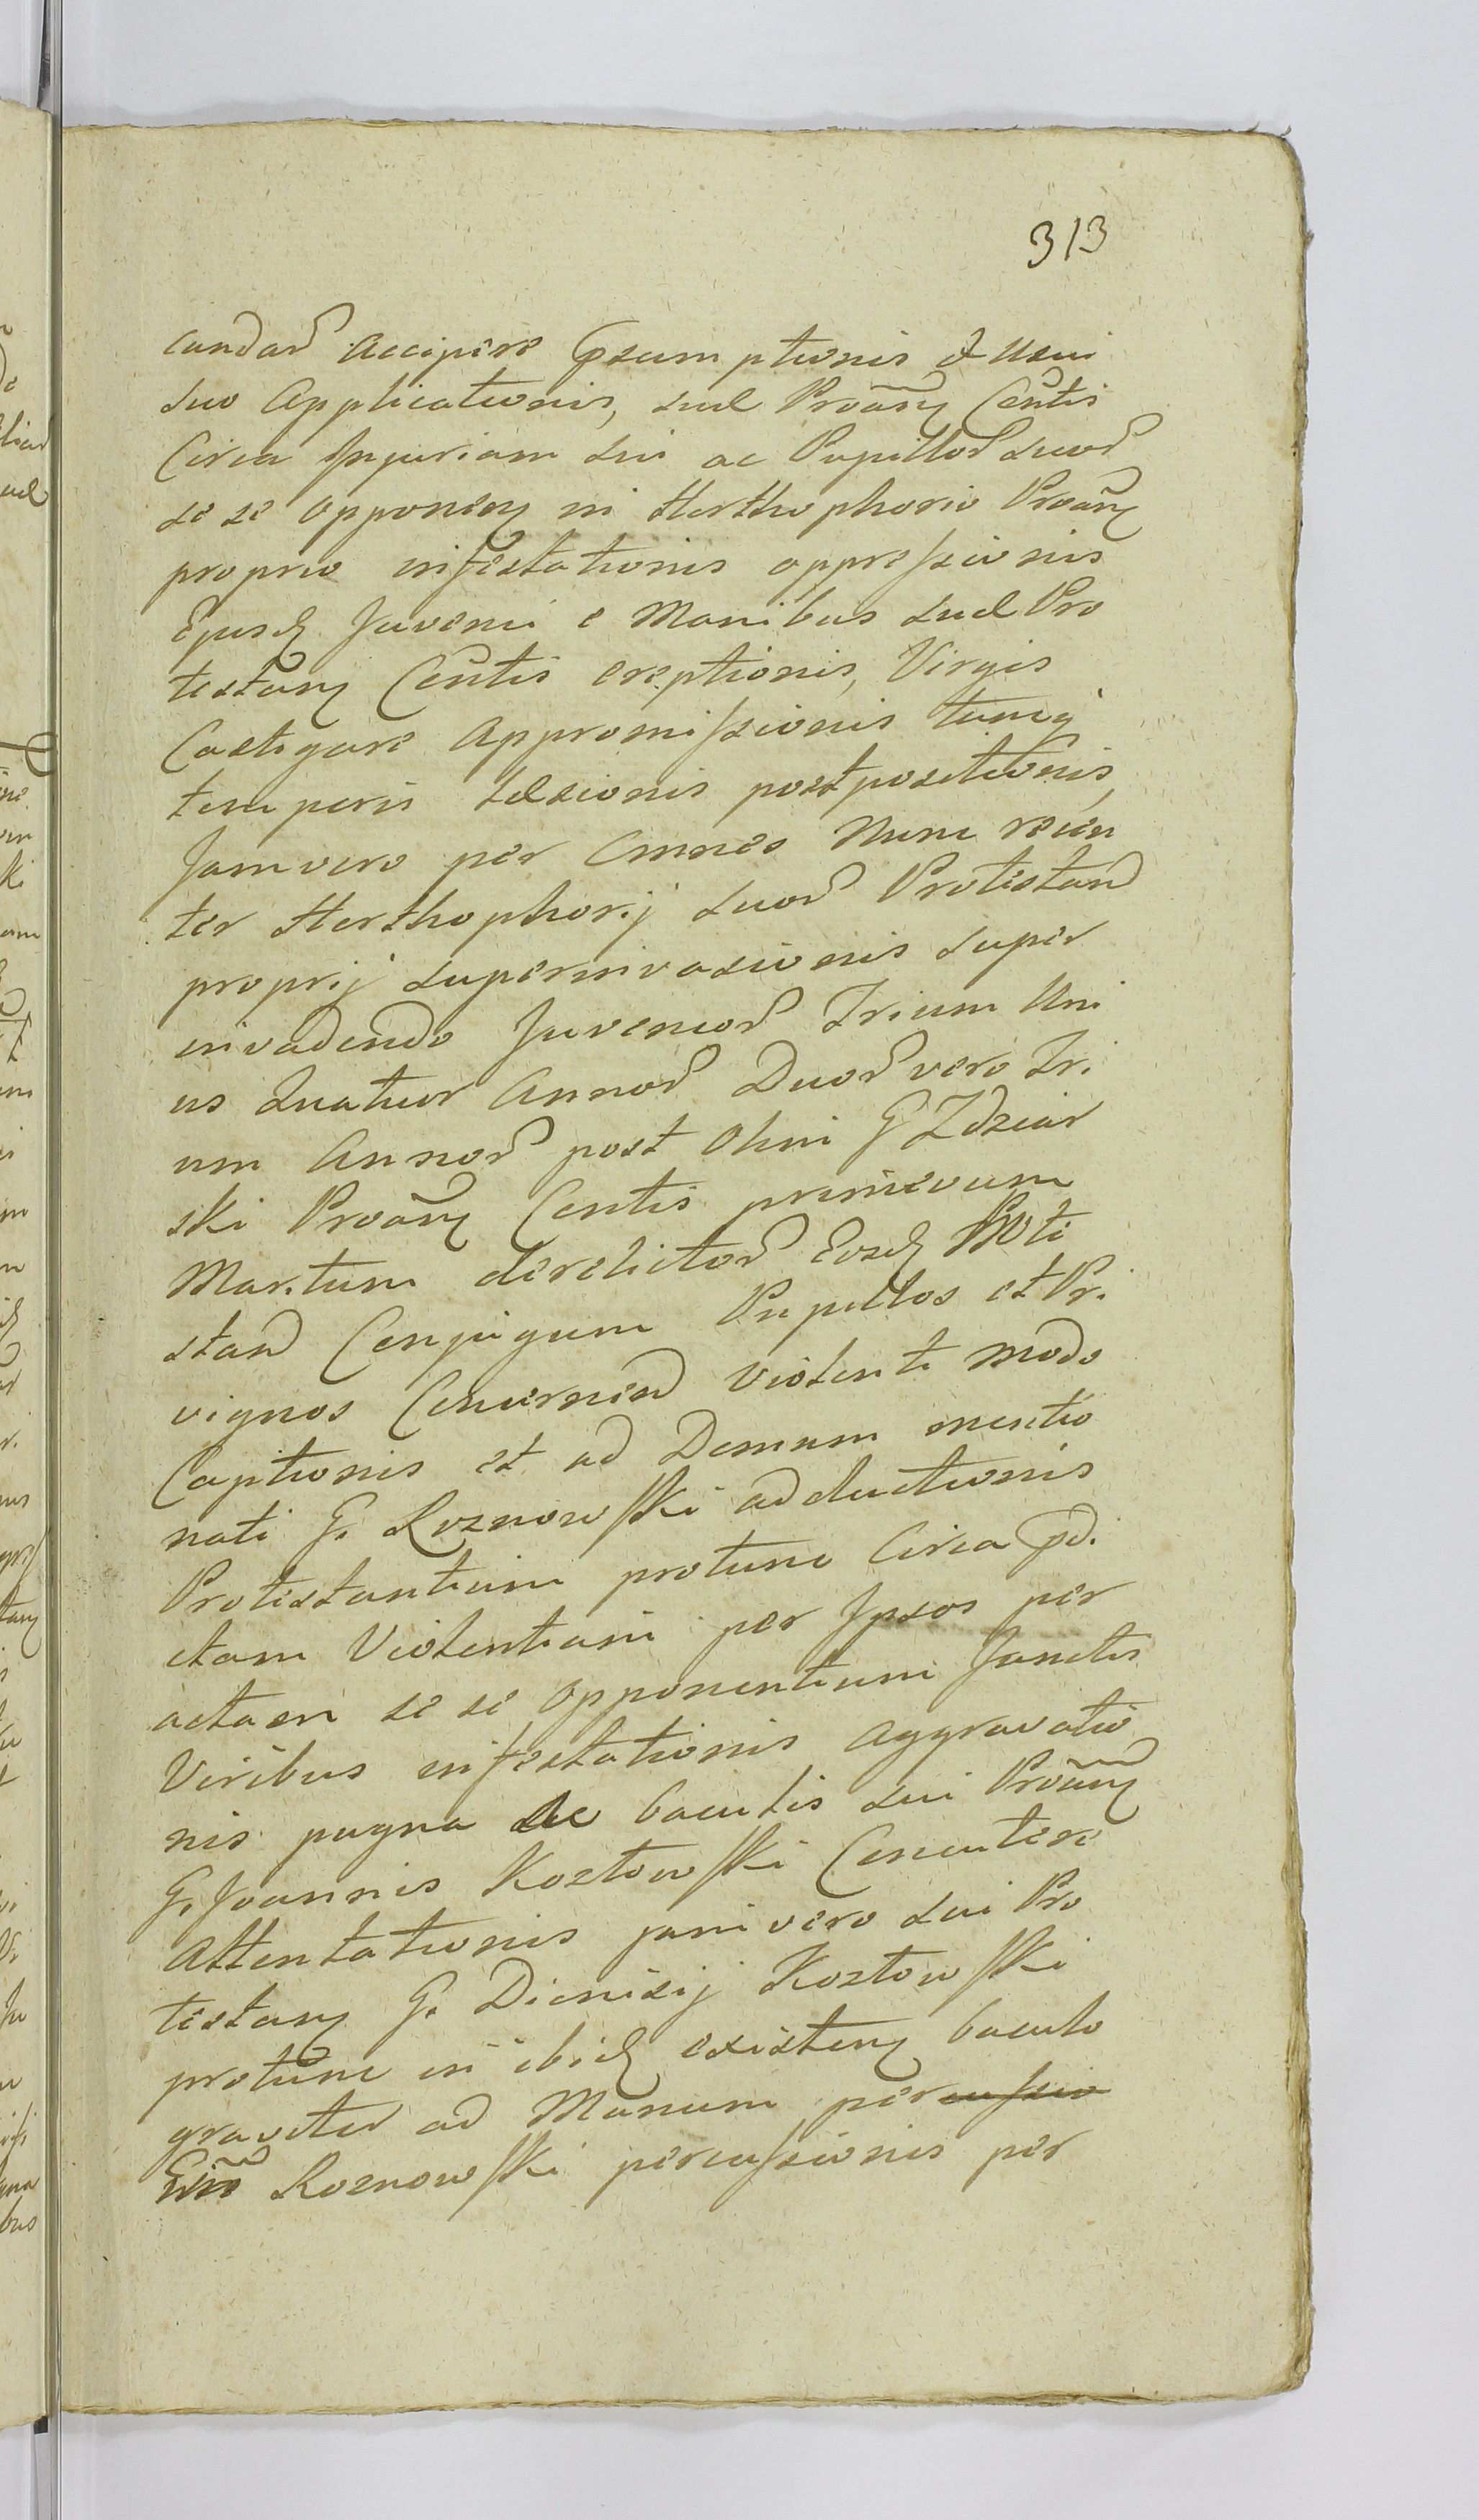 313
cundar Accipere Gsumptionis & Usui
suo Applicationis, sud Proãng Centis
Circa Injuriam sui ac Pupillor suor
se se opponeng in Horthophorio Proãng
proprio infestationis oppressionis
Ejusd Juvenii e Manibus sud Pro
testang Centis ereptionis, Virgis
Castigare Appromissionis tumq
temporis Lessionis postpositionis,
Jamvero per Omnes Nunc recen
ter Horthophorij suor Protestand
proprij superinvasionis super
invadendo Juvencor Trium Uni
us Quatuor Annor Duor vero Tri
um Annor post Olim G Zdziar
ski Proãng Centis primevum
Maritum derelictor Eosd Prote
stand Conjugum Pupillos et Pri
vignos Concernend violenti modo
Captionis et ad Domum mentio
nati G. Roznowski adductionis
Protestantium protunc Circa pdi
ctam Violentiam per Ipsos per
actam se se opponentium Junctis
Viribus infestationis aggravatio
nis pugna ac baculis sui Proãng
G. Joannis Kozłowski Concutere
Attentationis jamvero sui Pro
testang G. Dionisij Kozłowski
protunc in ibid existeng baculo
graviter ad Manum percussio
Roznowski percussionis per